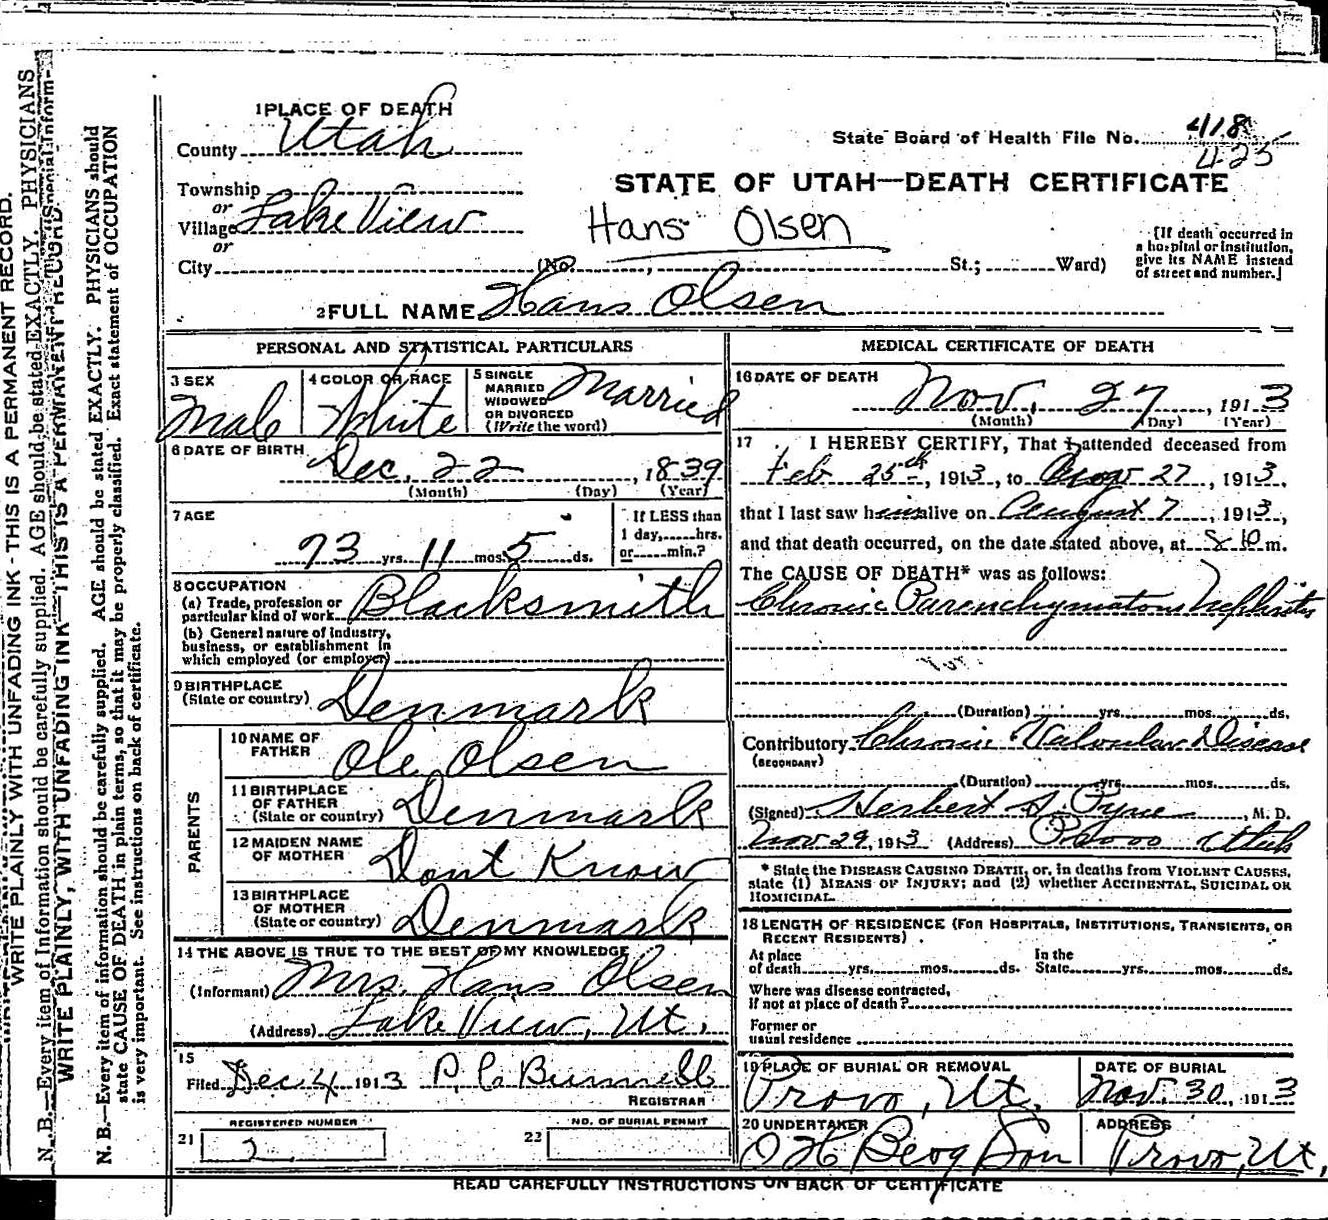 1 PLACE OF DEATH
County Utah
State Board of Health File No. 418
425
Township
or
Village Lake View
or
City (No. , St.; Ward)
STATE OF UTAH—DEATH CERTIFICATE
Hans Olsen
[If death occurred in
a hospital or institution,
give its NAME instead
of street and number.]
2 FULL NAME Hans Olsen
PERSONAL AND STATISTICAL PARTICULARS
3 SEX
Male
4 COLOR OR RACE
White
5 SINGLE
MARRIED
WIDOWED
OR DIVORCED
(Write the word)
Married
6 DATE OF BIRTH
Dec. 22, 1839
(Month) (Day) (Year)
7 AGE
73 yrs. 11 mos. 5 ds.
If LESS than
1 day,......hrs.
or......min.?
8 OCCUPATION
(a) Trade, profession or
particular kind of work Blacksmith
(b) General nature of industry,
business, or establishment in
which employed (or employer)
9 BIRTHPLACE
(State or country) Denmark
PARENTS
10 NAME OF
FATHER
Ole Olsen
11 BIRTHPLACE
OF FATHER
(State or country) Denmark
12 MAIDEN NAME
OF MOTHER Dont Know
13 BIRTHPLACE
OF MOTHER
(State or country) Denmark
14 THE ABOVE IS TRUE TO THE BEST OF MY KNOWLEDGE
(Informant) Mrs. Hans Olsen
(Address) Lake View, Ut.
15
Filed Dec 4 1913 P. C. Bunnell
REGISTRAR
REGISTERED NUMBER
21 2
NO. OF BURIAL PERMIT
22
MEDICAL CERTIFICATE OF DEATH
16 DATE OF DEATH
Nov. 27, 1913
(Month) (Day) (Year)
17 I HEREBY CERTIFY, That I attended deceased from
Feb 25th, 1913, to Nov 27, 1913,
that I last saw him alive on August 7, 1913,
and that death occurred, on the date stated above, at 8 m.
The CAUSE OF DEATH* was as follows:
Chronic Parenchymatous Nephritis
(Duration) yrs. mos. ds.
Contributory Chronic Valvular Disease
(SECONDARY)
(Duration) yrs. mos. ds.
(Signed) Herbert S. Pyne, M. D.
Nov 29, 1913 (Address) Provo Utah
* State the DISEASE CAUSING DEATH, or, in deaths from VIOLENT CAUSES,
state (1) MEANS OF INJURY; and (2) whether ACCIDENTAL, SUICIDAL OR
HOMICIDAL.
18 LENGTH OF RESIDENCE (FOR HOSPITALS, INSTITUTIONS, TRANSIENTS, OR
RECENT RESIDENTS)
At place
of death......yrs.......mos.......ds.
In the
State......yrs.......mos.......ds.
Where was disease contracted,
if not at place of death?
Former or
usual residence
19 PLACE OF BURIAL OR REMOVAL
Provo, Ut.
DATE OF BURIAL
Nov. 30, 1913
20 UNDERTAKER
O H Berg Son
ADDRESS
Provo, Ut.
READ CAREFULLY INSTRUCTIONS ON BACK OF CERTIFICATE
WRITE PLAINLY WITH UNFADING INK - THIS IS A PERMANENT RECORD.
N. B.—Every item of information should be carefully supplied. AGE should be stated EXACTLY. PHYSICIANS
WRITE PLAINLY, WITH UNFADING INK—THIS IS A PERMANENT RECORD
N. B.—Every item of information should be carefully supplied. AGE should be stated EXACTLY. PHYSICIANS should
state CAUSE OF DEATH in plain terms, so that it may be properly classified. Exact statement of OCCUPATION
is very important. See instructions on back of certificate.